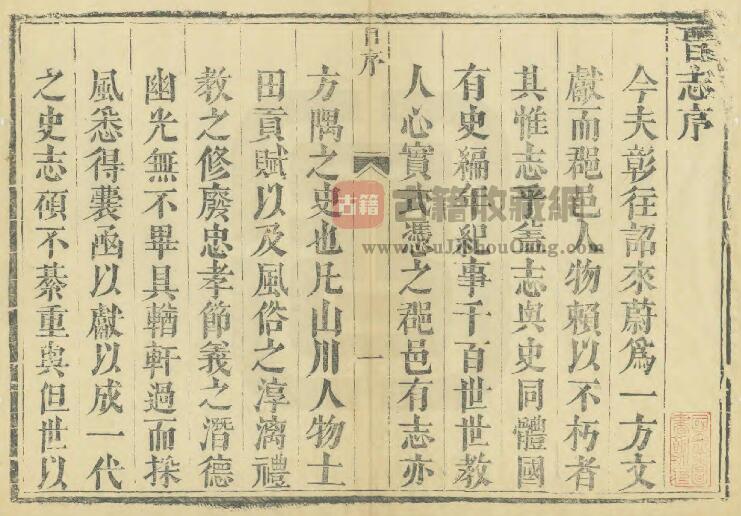 舊志序
今夫彰往詔來蔚為一方文
獻而郡邑人物賴以不朽者
其惟志乎蓋志與史同體國
有史編年紀事千百世世教
人心實式憑之郡邑有志亦
序
一
方隅之史也凡山川人物土
田貢賦以及風俗之淳漓禮
教之修廢忠孝節義之潛德
幽光無不畢具輶軒過而採
風悉得囊函以獻以成一代
之史志顧不綦重與但世以
古籍
古籍收藏網
www.GuJiShouCang.com